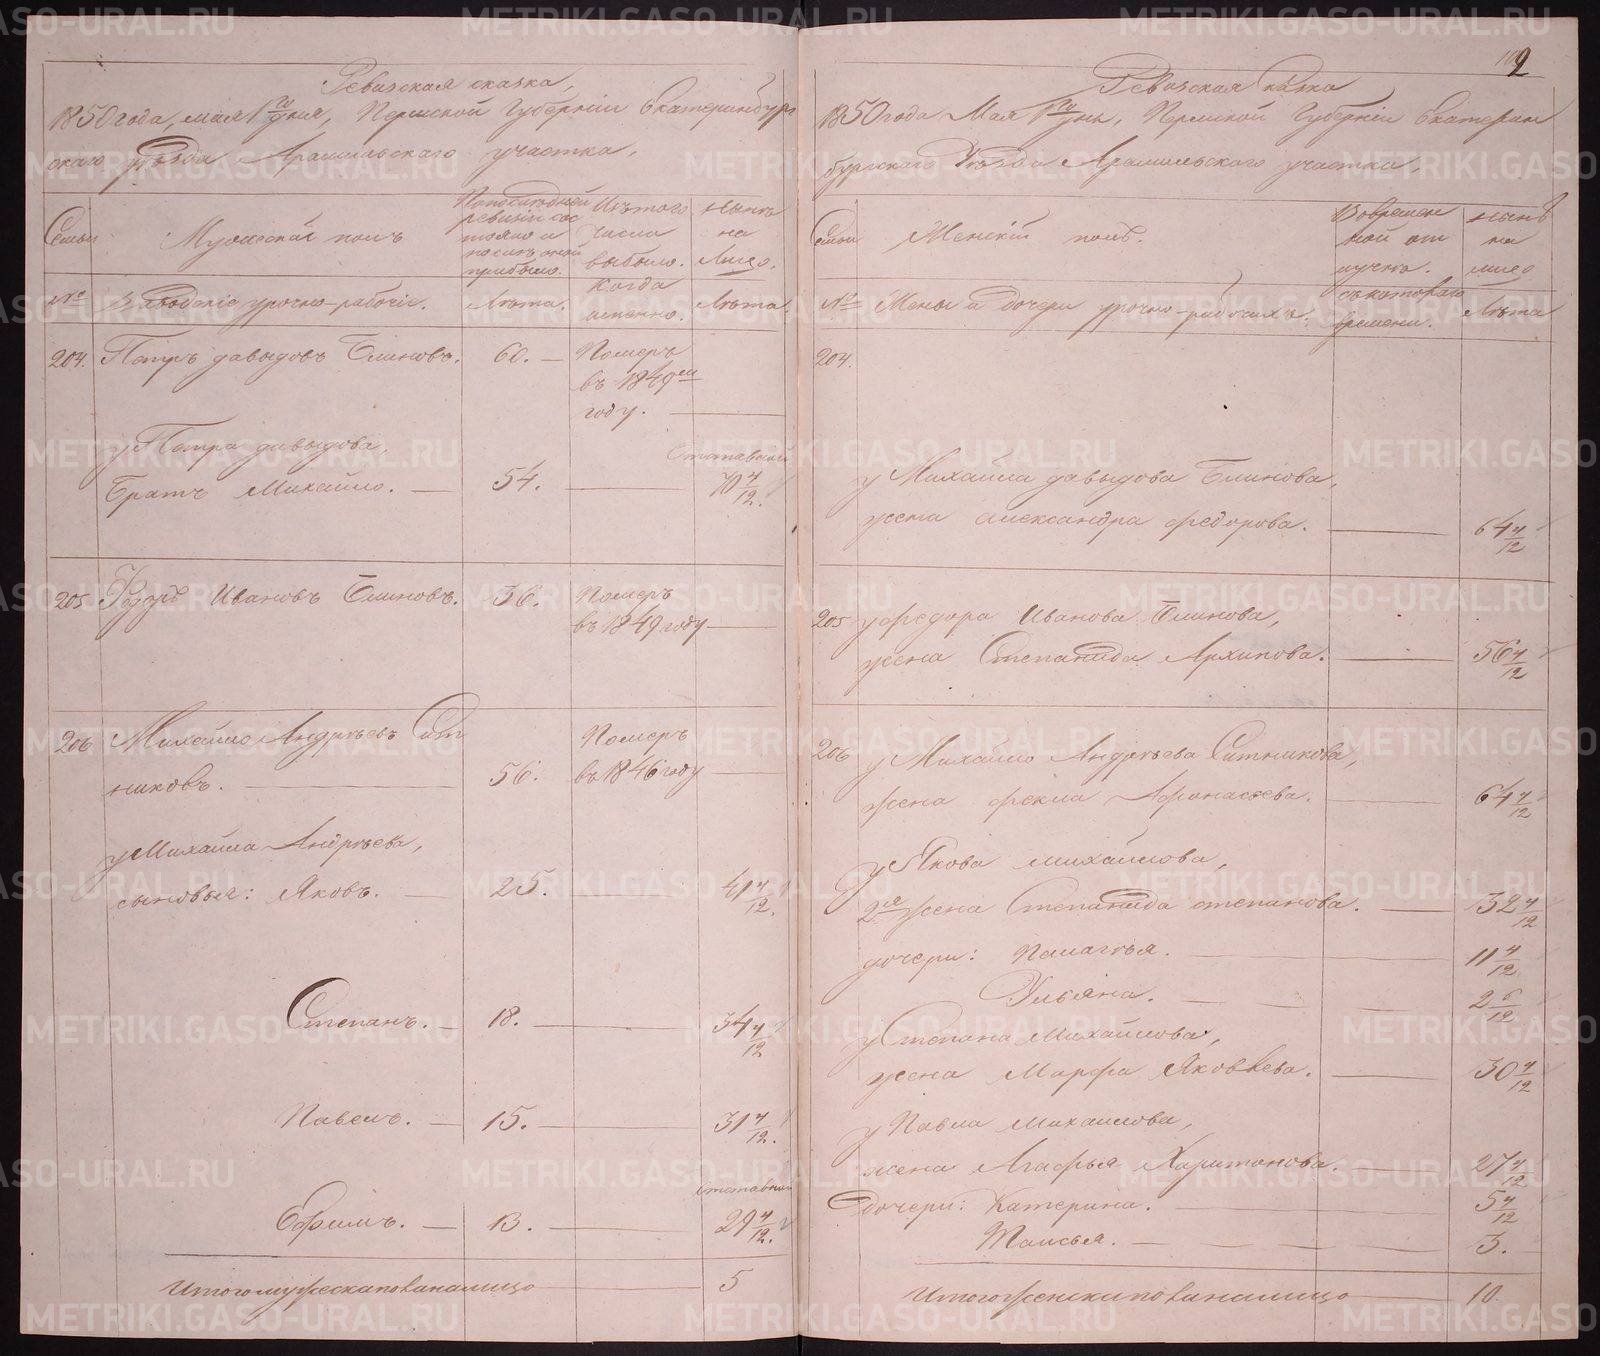 Ревизская сказка,
1850 года, мая 1го дня, Пермской Губерніи Екатеринбург
скаго уѣзда Арамильскаго участка,
Семьи
Мужеской полъ
По последней
ревизіи сос
тояло и
после оной
прибыло.
Изъ того
числа
выбыло.
Нынѣ
на
Лицо.
№
Заводскіе урочно-рабочіе.
Лѣта.
Когда
именно.
Лѣта.
204. Петръ давыдовъ Блиновъ. 60. Померъ
въ 1849м
году.
у Петра давыдова,
Отставной
братъ Михайло. 54. 70 4/12.
205 Федоръ Ивановъ Блиновъ. 36. Померъ
въ 1849 году
206 Михайло Андреевъ Сит
никовъ. 56. Померъ
въ 1846 году
у Михайла Андреева,
сыновья: Яковъ. 25. 41 4/12.
Степанъ. 18. 34 4/12
Павелъ. 15. 31 4/12.
Отставной
Ефимъ. 13. 29 4/12.
Итого мужеска пола налицо 5
2
Ревизская сказка
1850 года Мая 1го дня, Пермской Губерніи Екатерин
бургскаго Уѣзда Арамильскаго участка,
Семьи
Женскій полъ.
Во времен
ной от
лучкѣ.
Нынѣ
на
лицо
№ Жены и дочери урочно-рабочихъ.
съ котораго
времени.
Лѣта
204.
у Михайла давыдова Блинова,
жена александра федорова. 64 4/12
205 у федора Иванова Блинова,
жена Степанида Архипова. 56 4/12
206 у Михайло Андреева Ситникова,
жена фекла Афонасьева. 64 4/12
у Якова михайлова,
2я жена Степанида степанова. 32 4/12
дочери: Палагѣя. 11 4/12
Ульяна. 2 6/12
у Степана Михайлова,
жена Марфа Яковлева. 30 4/12
у Павла михайлова,
жена Агафья Харитонова. 27 4/12
дочери: Катерина. 5 4/12
Таисья. 3.
Итого женска пола налицо 10
METRIKI.GASO-URAL.RU